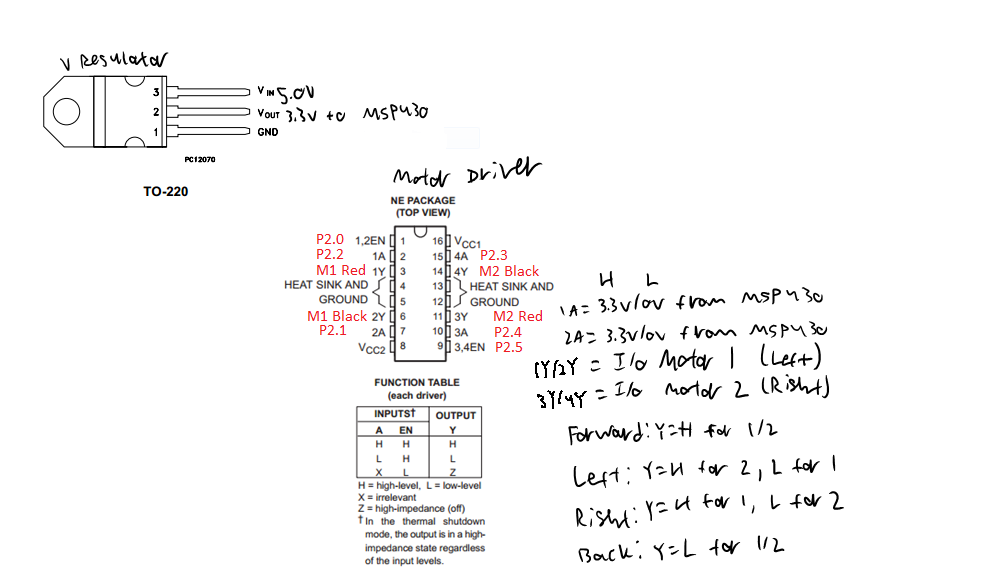 V Regulator
3 VIN 5.0V
2 VOUT 3.3V to MSP430
1 GND
PC12070
TO-220
Motor Driver
NE PACKAGE
(TOP VIEW)
P2.0 1,2EN 1 16 VCC1
P2.2 1A 2 15 4A P2.3
M1 Red 1Y 3 14 4Y M2 Black
HEAT SINK AND 4 13 HEAT SINK AND
GROUND 5 12 GROUND
M1 Black 2Y 6 11 3Y M2 Red
P2.1 2A 7 10 3A P2.4
VCC2 8 9 3,4EN P2.5
FUNCTION TABLE
(each driver)
INPUTS† OUTPUT
A EN Y
H H H
L H L
X L Z
H = high-level, L = low-level
X = irrelevant
Z = high-impedance (off)
† In the thermal shutdown
mode, the output is in a high-
impedance state regardless
of the input levels.
H L
1A = 3.3V/0V from MSP430
2A = 3.3V/0V from MSP430
1Y/2Y = I/o Motor 1 (Left)
3Y/4Y = I/o motor 2 (Right)
Forward: Y=H for 1/2
Left: Y=H for 2, L for 1
Right: Y=H for 1, L for 2
Back: Y=L for 1/2